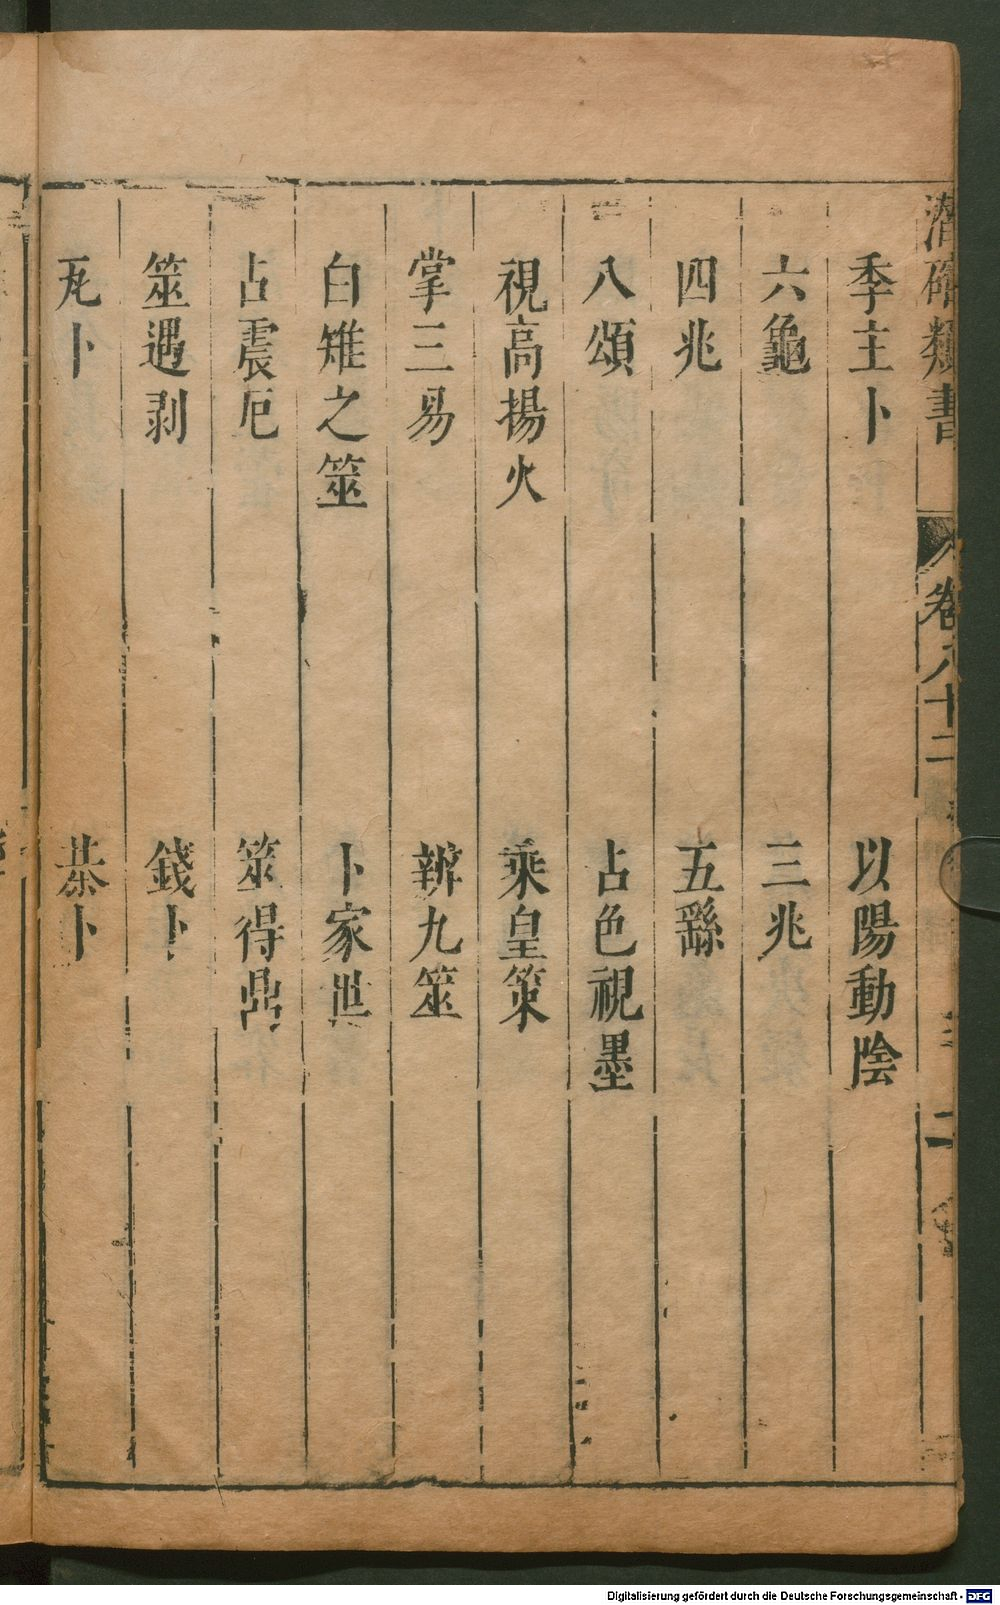 潛確類書
卷八十二
二
季主卜 以陽動陰
六龜 三兆
四兆 五繇
八頌 占色視墨
視高揚火 乘皇策
掌三易 辨九筮
白雉之筮 卜家世
占震厄 筮得鼎
筮遇剥 錢卜
瓦卜 棊卜
Digitalisierung gefördert durch die Deutsche Forschungsgemeinschaft - DFG